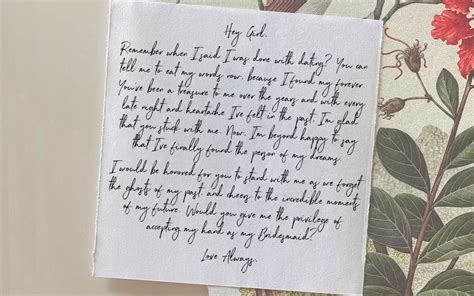 Hey Girl,
Remember when I said I was done with dating? You can
tell me to eat my words now, because I found my forever.
You've been a treasure to me over the years and with every
late night and heartache I've felt in the past, I'm glad
that you stuck with me. Now, I'm beyond happy to say
that I've finally found the person of my dreams.
I would be honored for you to stand with me as we forget
the ghosts of my past and cheers to the incredible moments
of my future. Would you give me the privilege of
accepting my hand as my Bridesmaid?
Love Always,